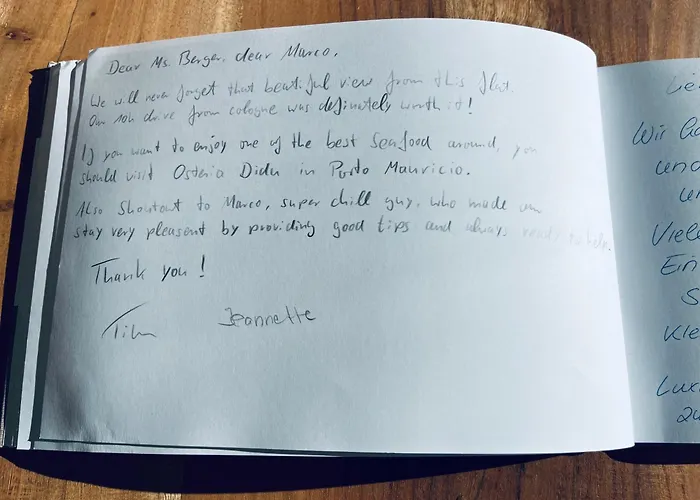 Dear Ms. Berger, dear Marco,
We will never forget that beautiful view from this flat.
Our 10h drive from cologne was definately worth it!
If you want to enjoy one of the best seafood around, you
should visit Osteria Didu in Porto Mauricio.
Also Shoutout to Marco, super chill guy, who made our
stay very pleasent by providing good tips and always ready to help.
Thank you!
Tim Jeannette
Wir
und
Viele
Ein
S
Kle
Lux